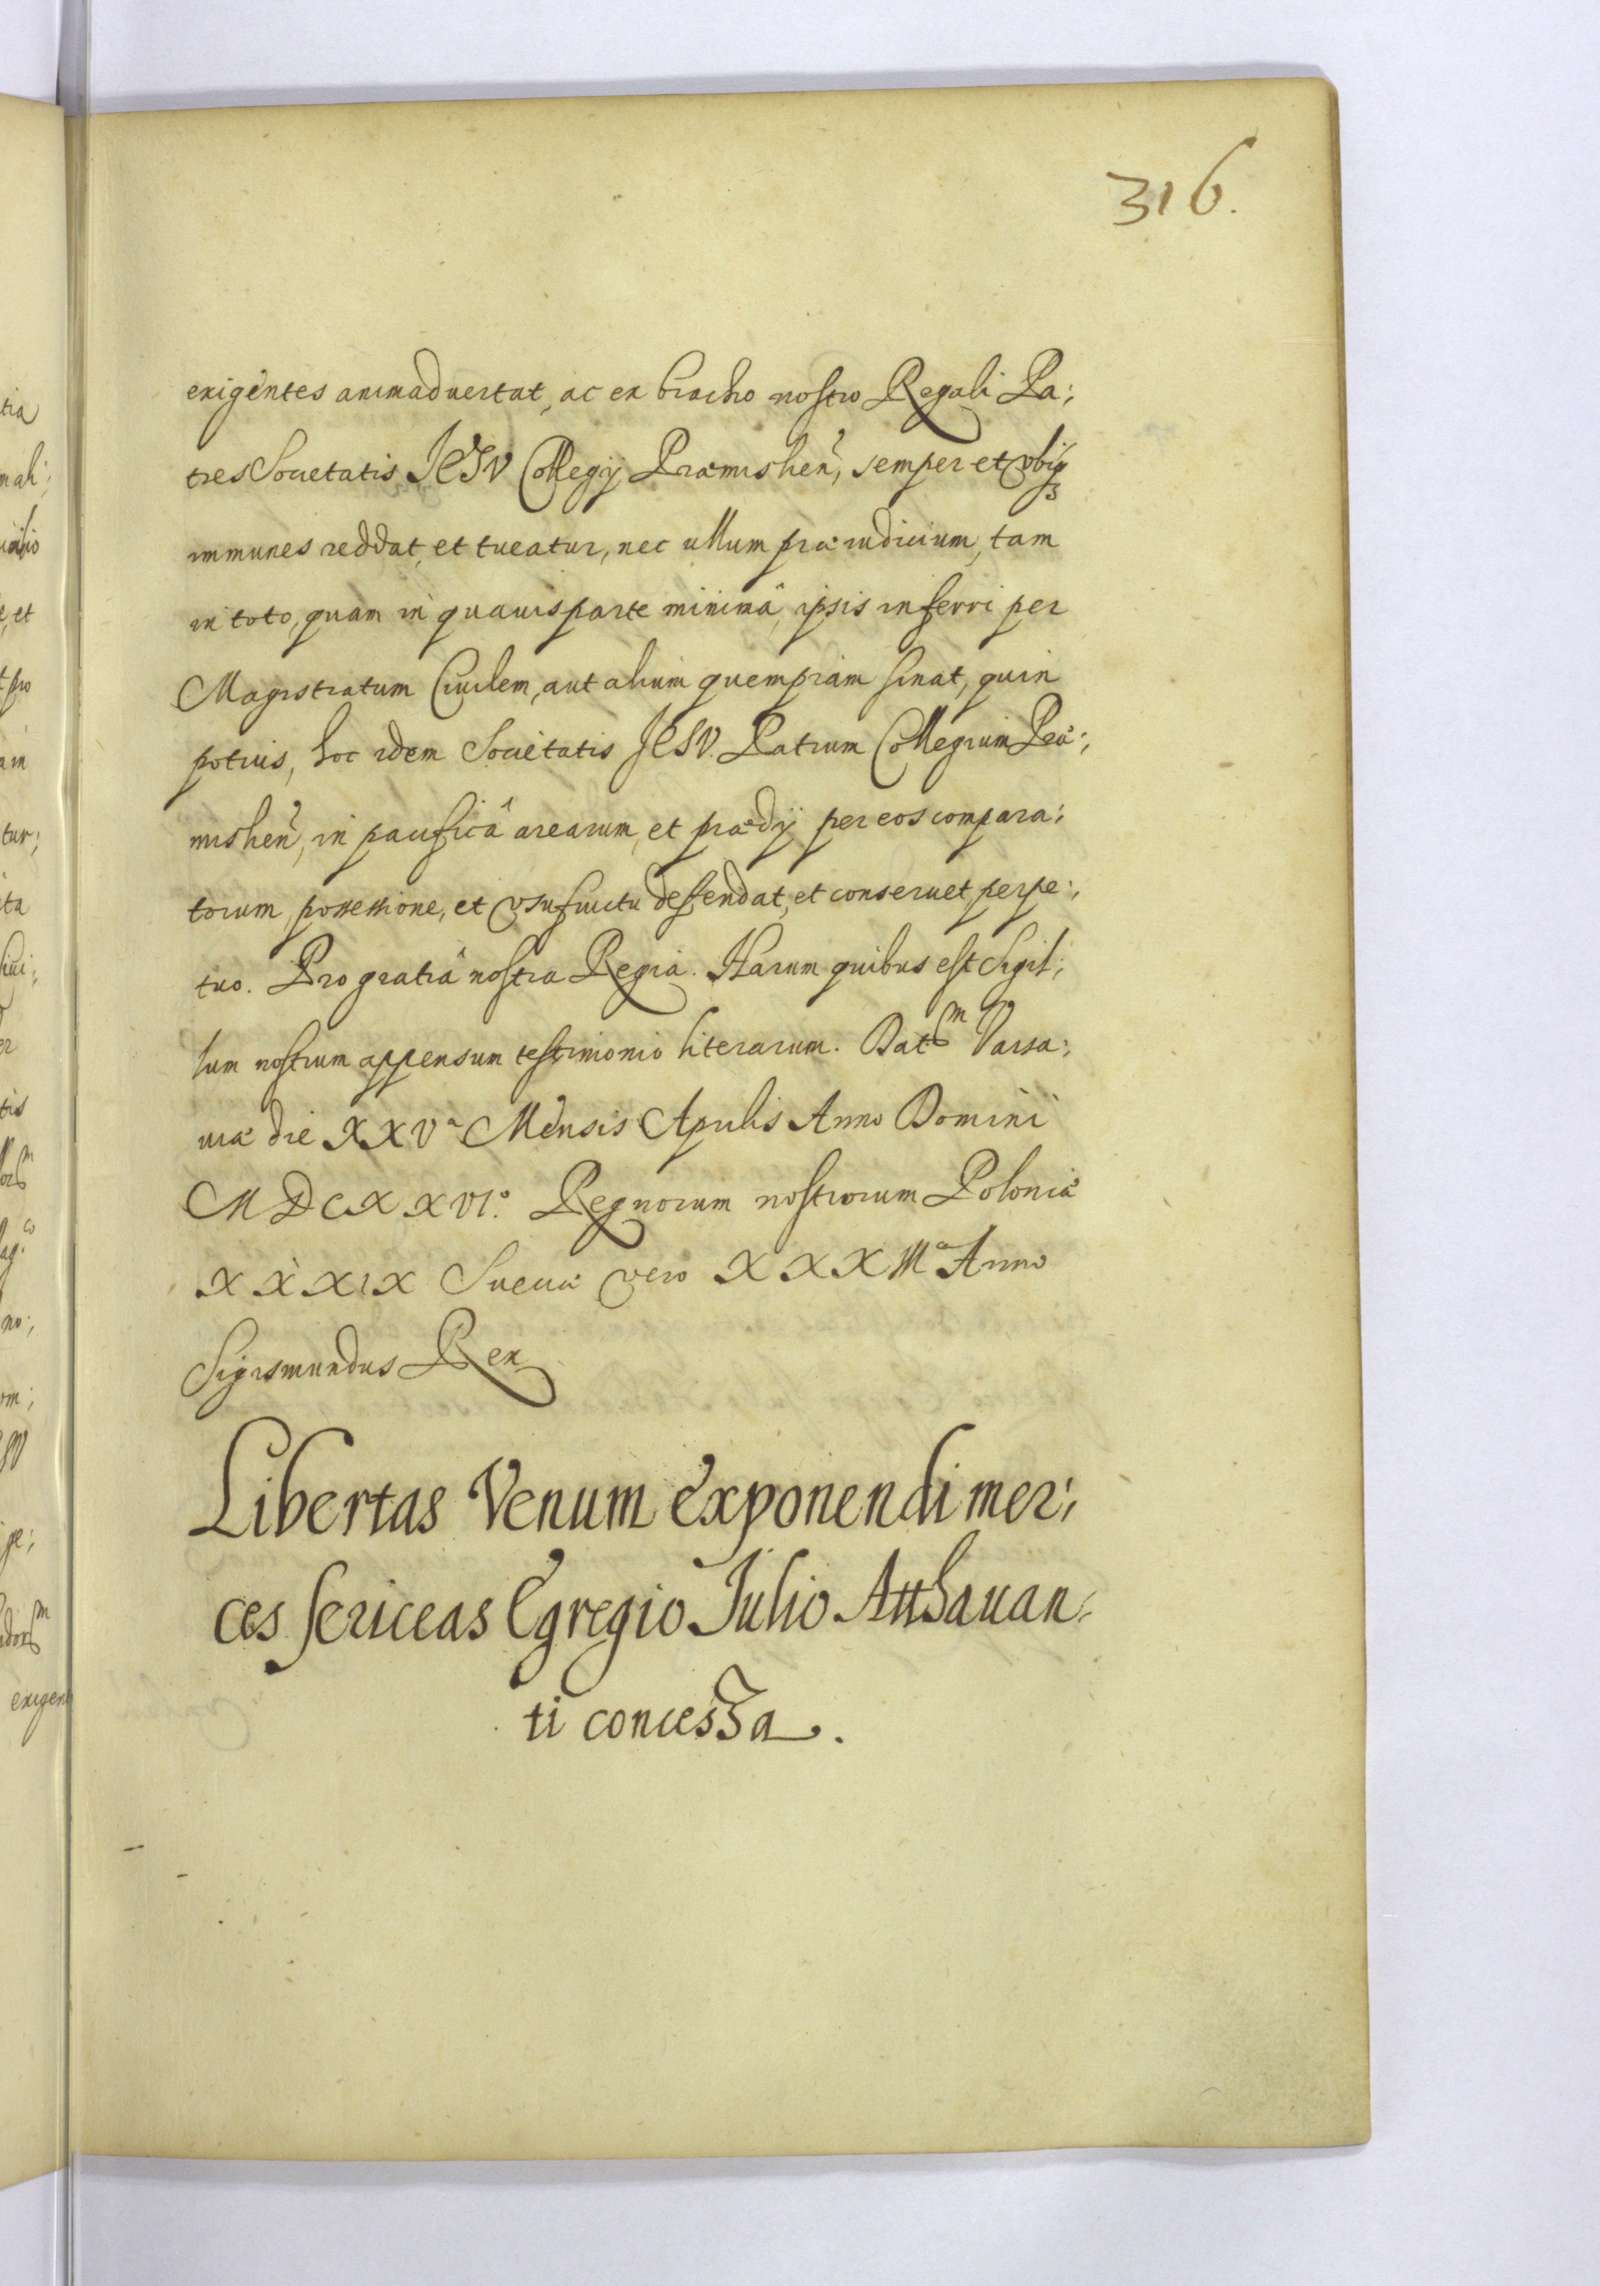 316.
exigentes animaduertat, ac ex brachio nostro Regali Pa:
tres Societatis JESV Collegij Præmislien, semper et vbiq3
immunes reddat, et tueatur, nec ullum præiudicium, tam
in toto, quam in quauis parte minimâ, ipsis inferri per
Magistratum Ciuilem, aut alium quempiam sinat, quin
potius, hoc idem Societatis JESV. Patrum Collegium Præ:
mislien, in pacificâ arearum, et prædij per eos compara:
torum possessione, et vsufructu deffendat, et conseruet perpe:
tuo. Pro gratiâ nostra Regia. Harum quibus est Sigil:
lum nostrum appensum testimonio literarum. Datm Varsa:
uiæ die XXVa Mensis Aprilis Anno Domini
MDCXXVI.o Regnorum nostrorum Poloniæ
XXXIX Sueciæ vero XXXIIIo Anno
Sigismundus Rex
Libertas Venum exponendi mer:
ces sericeas Egregio Julio Atthauan:
ti concessa.
tia
mali:
e, et
t pro
am
tur;
ita
tis
no:
om:
pe:
exigen